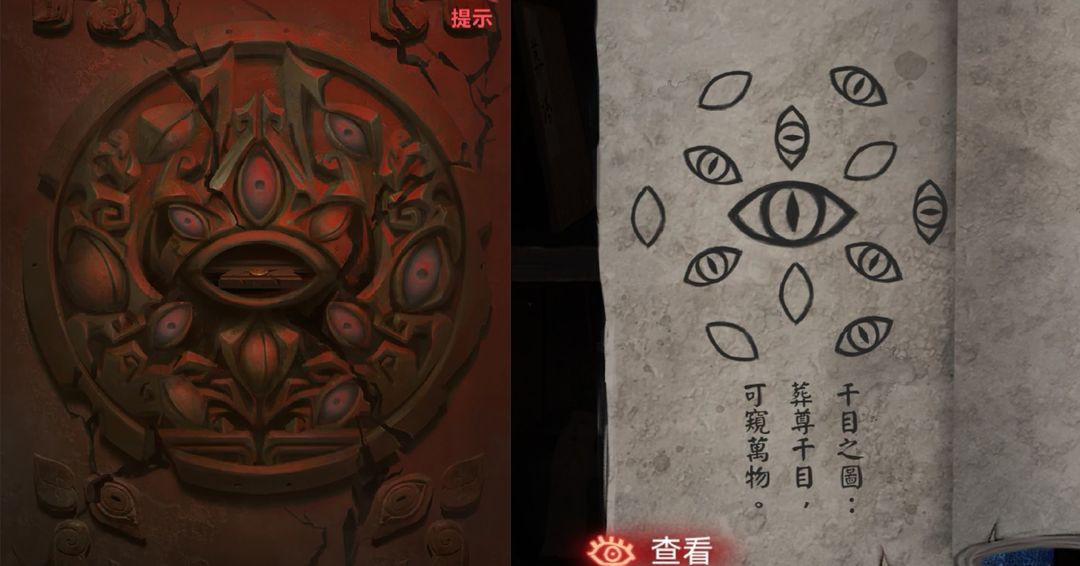 提示
千目之圖：
葬尊千目，
可窺萬物。
查看